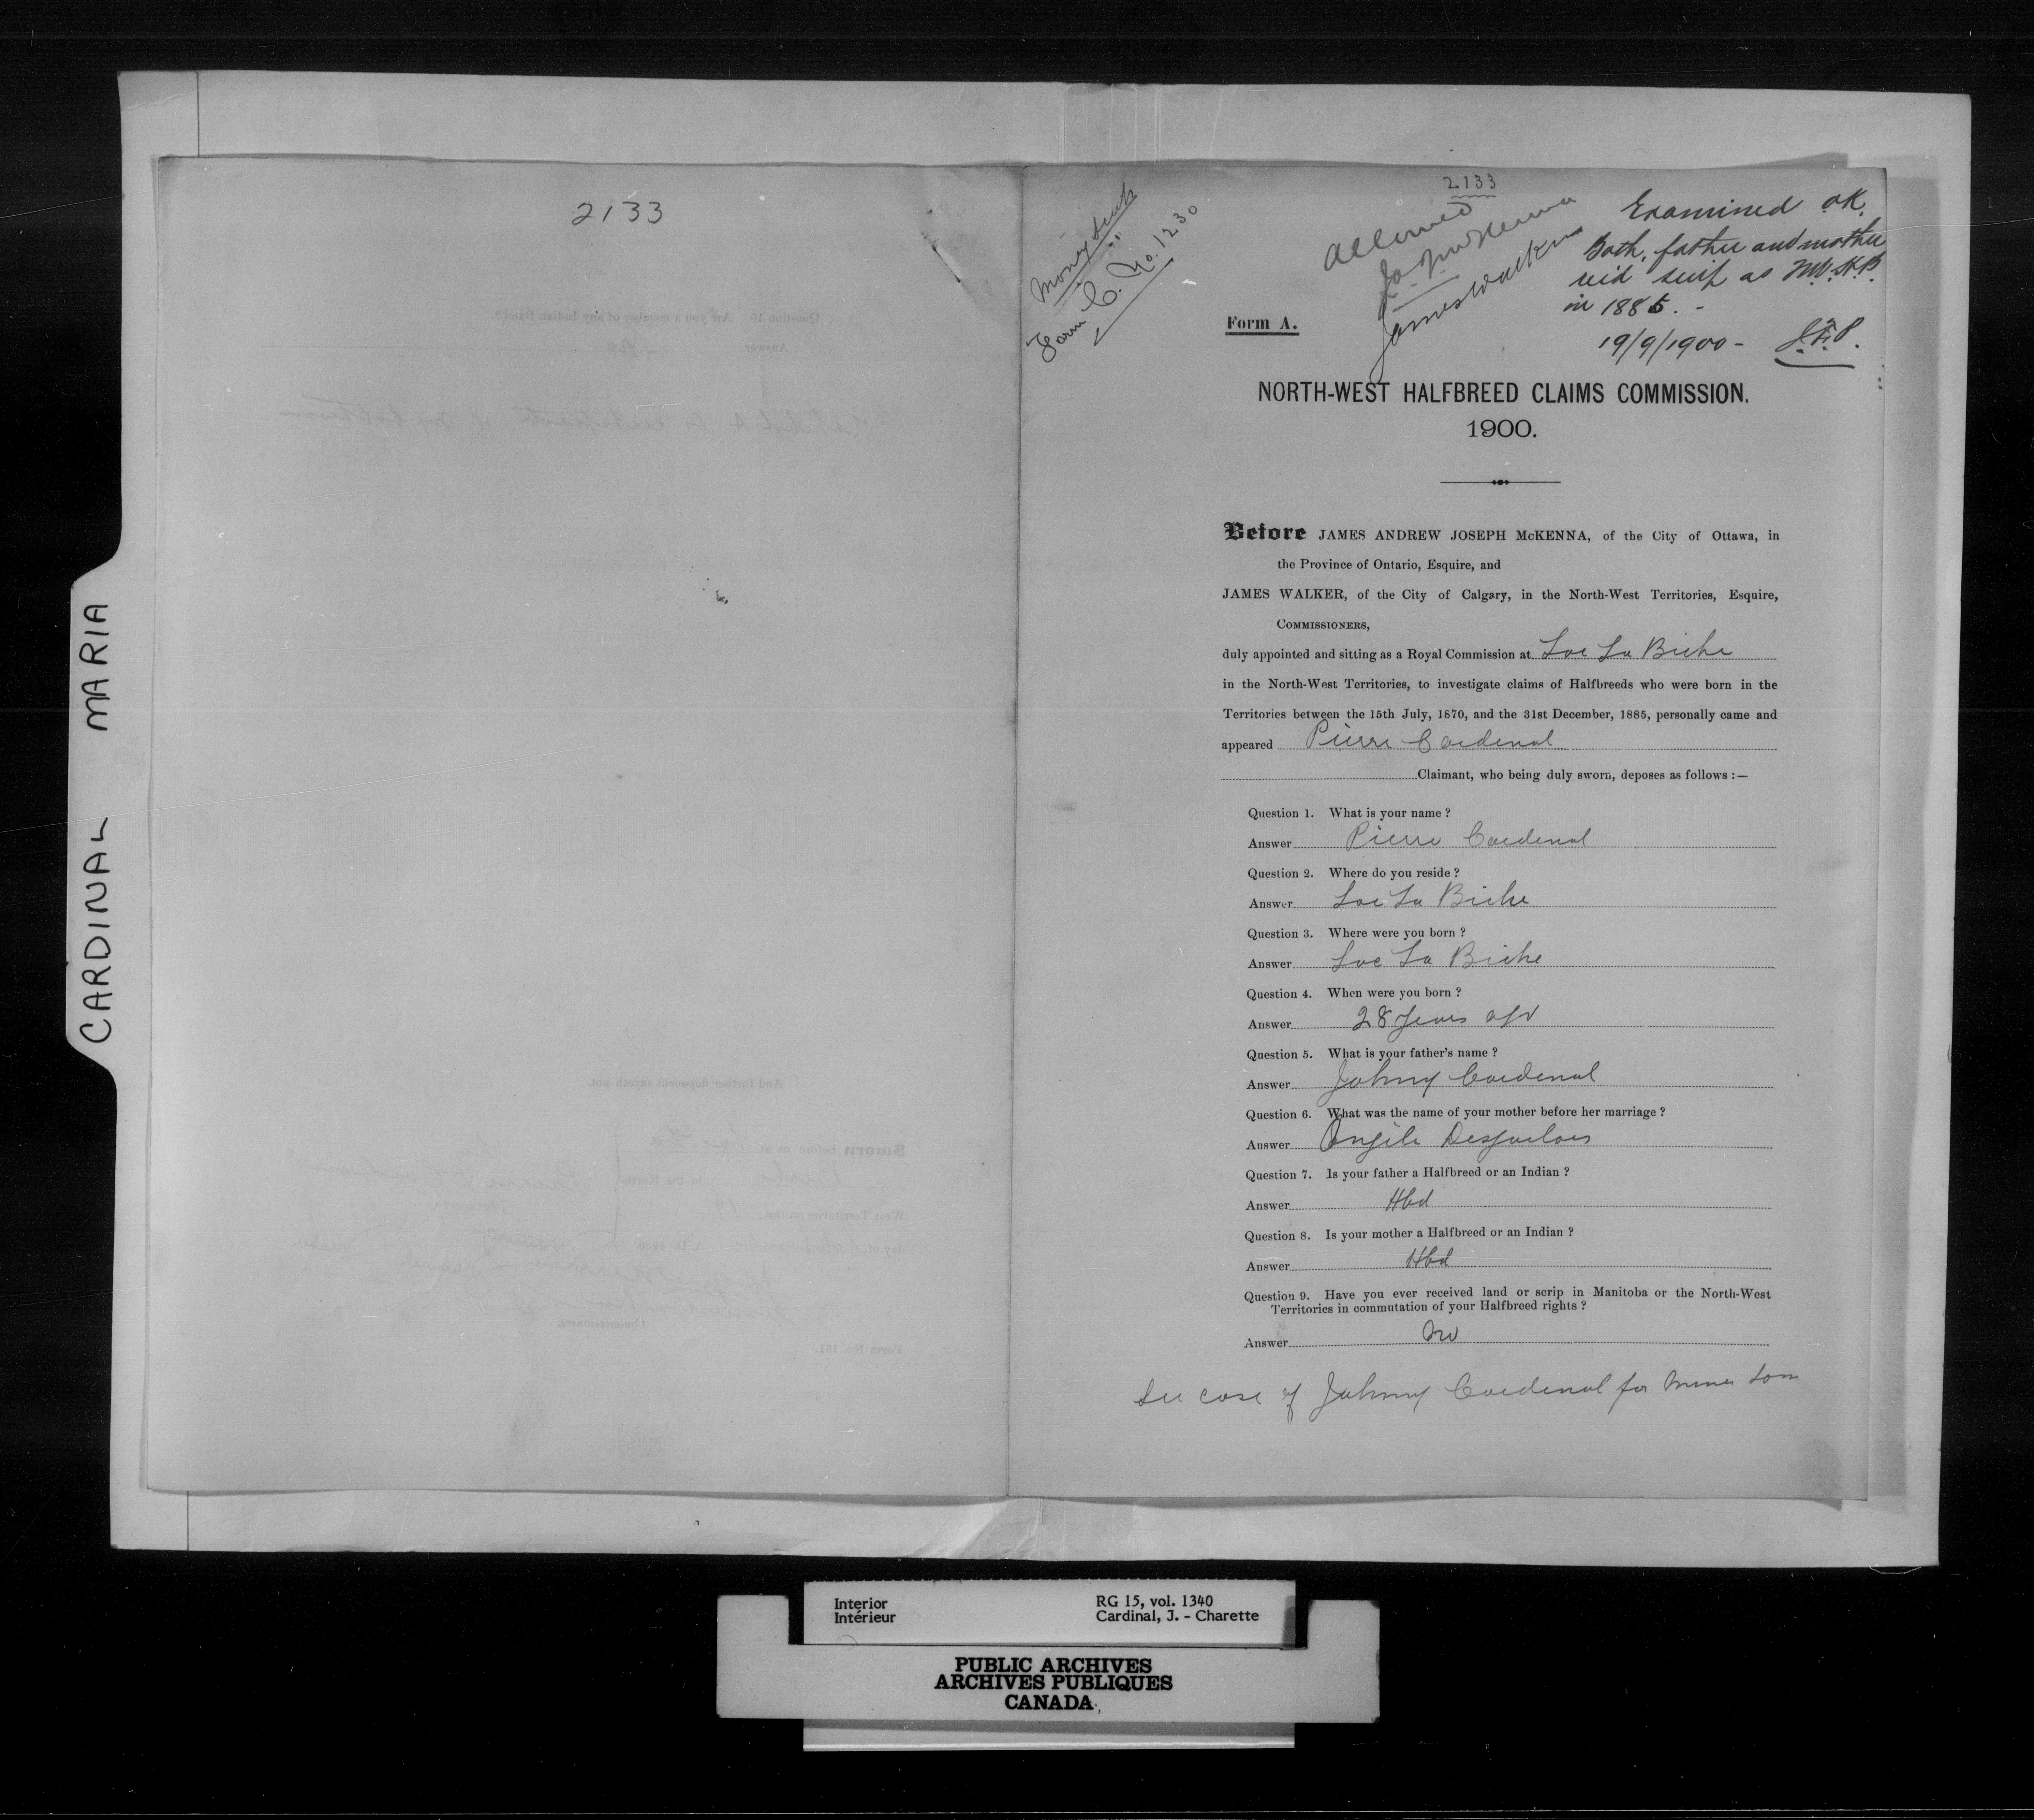 CARDINAL MARIA
2133
Money Scrip
Form C. No. 1230
2133
Allowed
J.A.J. McKenna
James Walker
Examined OK.
Both, father and mother
rec'd scrip as N.W.H.B.
in 1885. -
19/9/1900 -
Form A.
NORTH-WEST HALFBREED CLAIMS COMMISSION.
1900.
Before JAMES ANDREW JOSEPH McKENNA, of the City of Ottawa, in
the Province of Ontario, Esquire, and
JAMES WALKER, of the City of Calgary, in the North-West Territories, Esquire,
COMMISSIONERS,
duly appointed and sitting as a Royal Commission at Lac La Biche
in the North-West Territories, to investigate claims of Halfbreeds who were born in the
Territories between the 15th July, 1870, and the 31st December, 1885, personally came and
appeared Pierre Cardinal
Claimant, who being duly sworn, deposes as follows :—
Question 1. What is your name ?
Answer Pierre Cardinal
Question 2. Where do you reside ?
Answer Lac La Biche
Question 3. Where were you born ?
Answer Lac La Biche
Question 4. When were you born ?
Answer 28 years ago
Question 5. What is your father's name ?
Answer Johnny Cardinal
Question 6. What was the name of your mother before her marriage ?
Answer Angele Desjarlais
Question 7. Is your father a Halfbreed or an Indian ?
Answer Hbd
Question 8. Is your mother a Halfbreed or an Indian ?
Answer Hbd
Question 9. Have you ever received land or scrip in Manitoba or the North-West
Territories in commutation of your Halfbreed rights ?
Answer No
See case of Johnny Cardinal for minor son
Interior
Intérieur
RG 15, vol. 1340
Cardinal, J. - Charette
PUBLIC ARCHIVES
ARCHIVES PUBLIQUES
CANADA